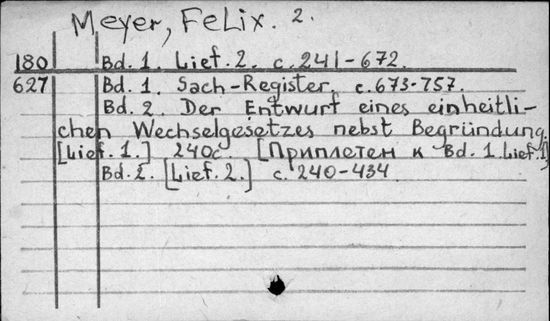 Meyer, Felix. 2.
180 Bd. 1. Lief. 2. с. 241-672.
627 Bd. 1. Sach-Register. с. 673-757.
Bd. 2. Der Entwurf eines einheitli-
chen Wechselgesetzes nebst Begründung
[Lief. 1.] 240с [Приплетен к Bd. 1. Lief. 1]
Bd. 2. [Lief. 2.] с. 240-434